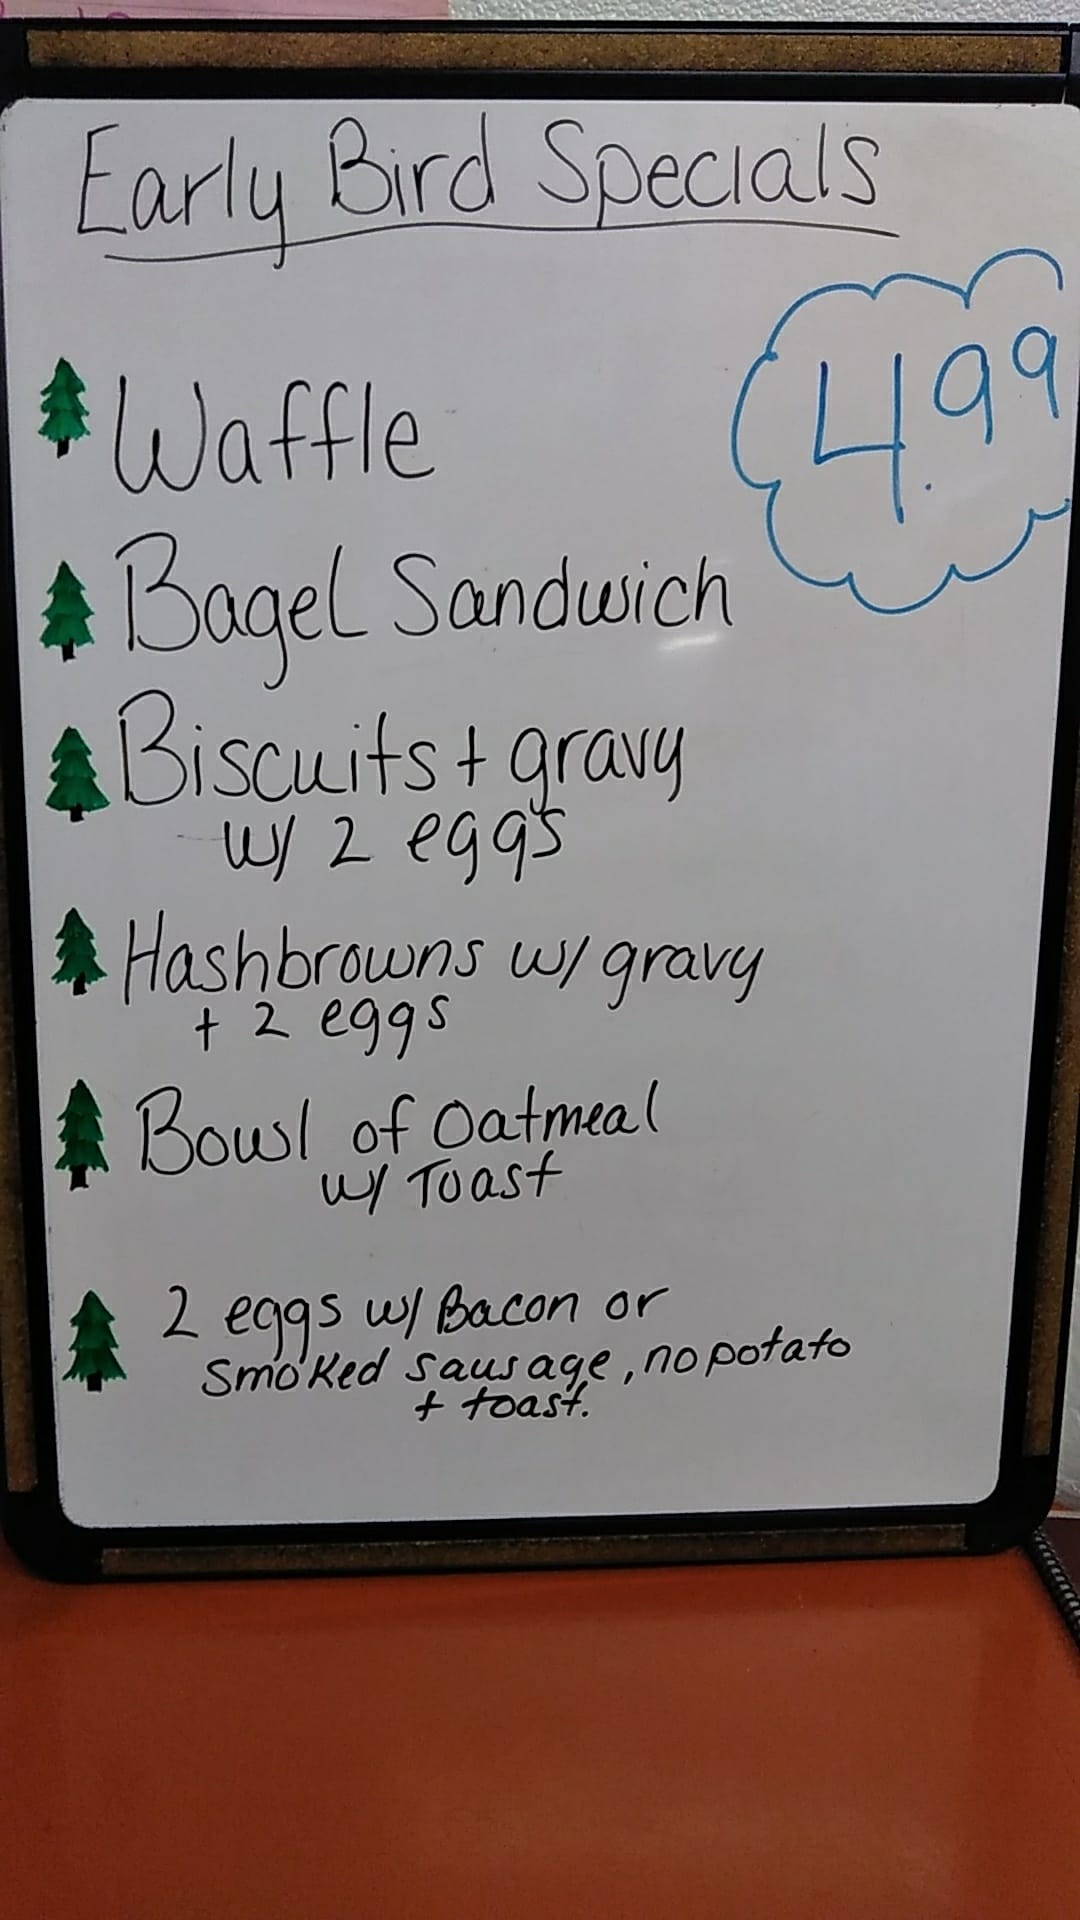 Early Bird Specials
4.99
Waffle
Bagel Sandwich
Biscuits + gravy
w/ 2 eggs
Hashbrowns w/ gravy
+ 2 eggs
Bowl of Oatmeal
w/ Toast
2 eggs w/ Bacon or
smoked sausage, no potato
+ toast.